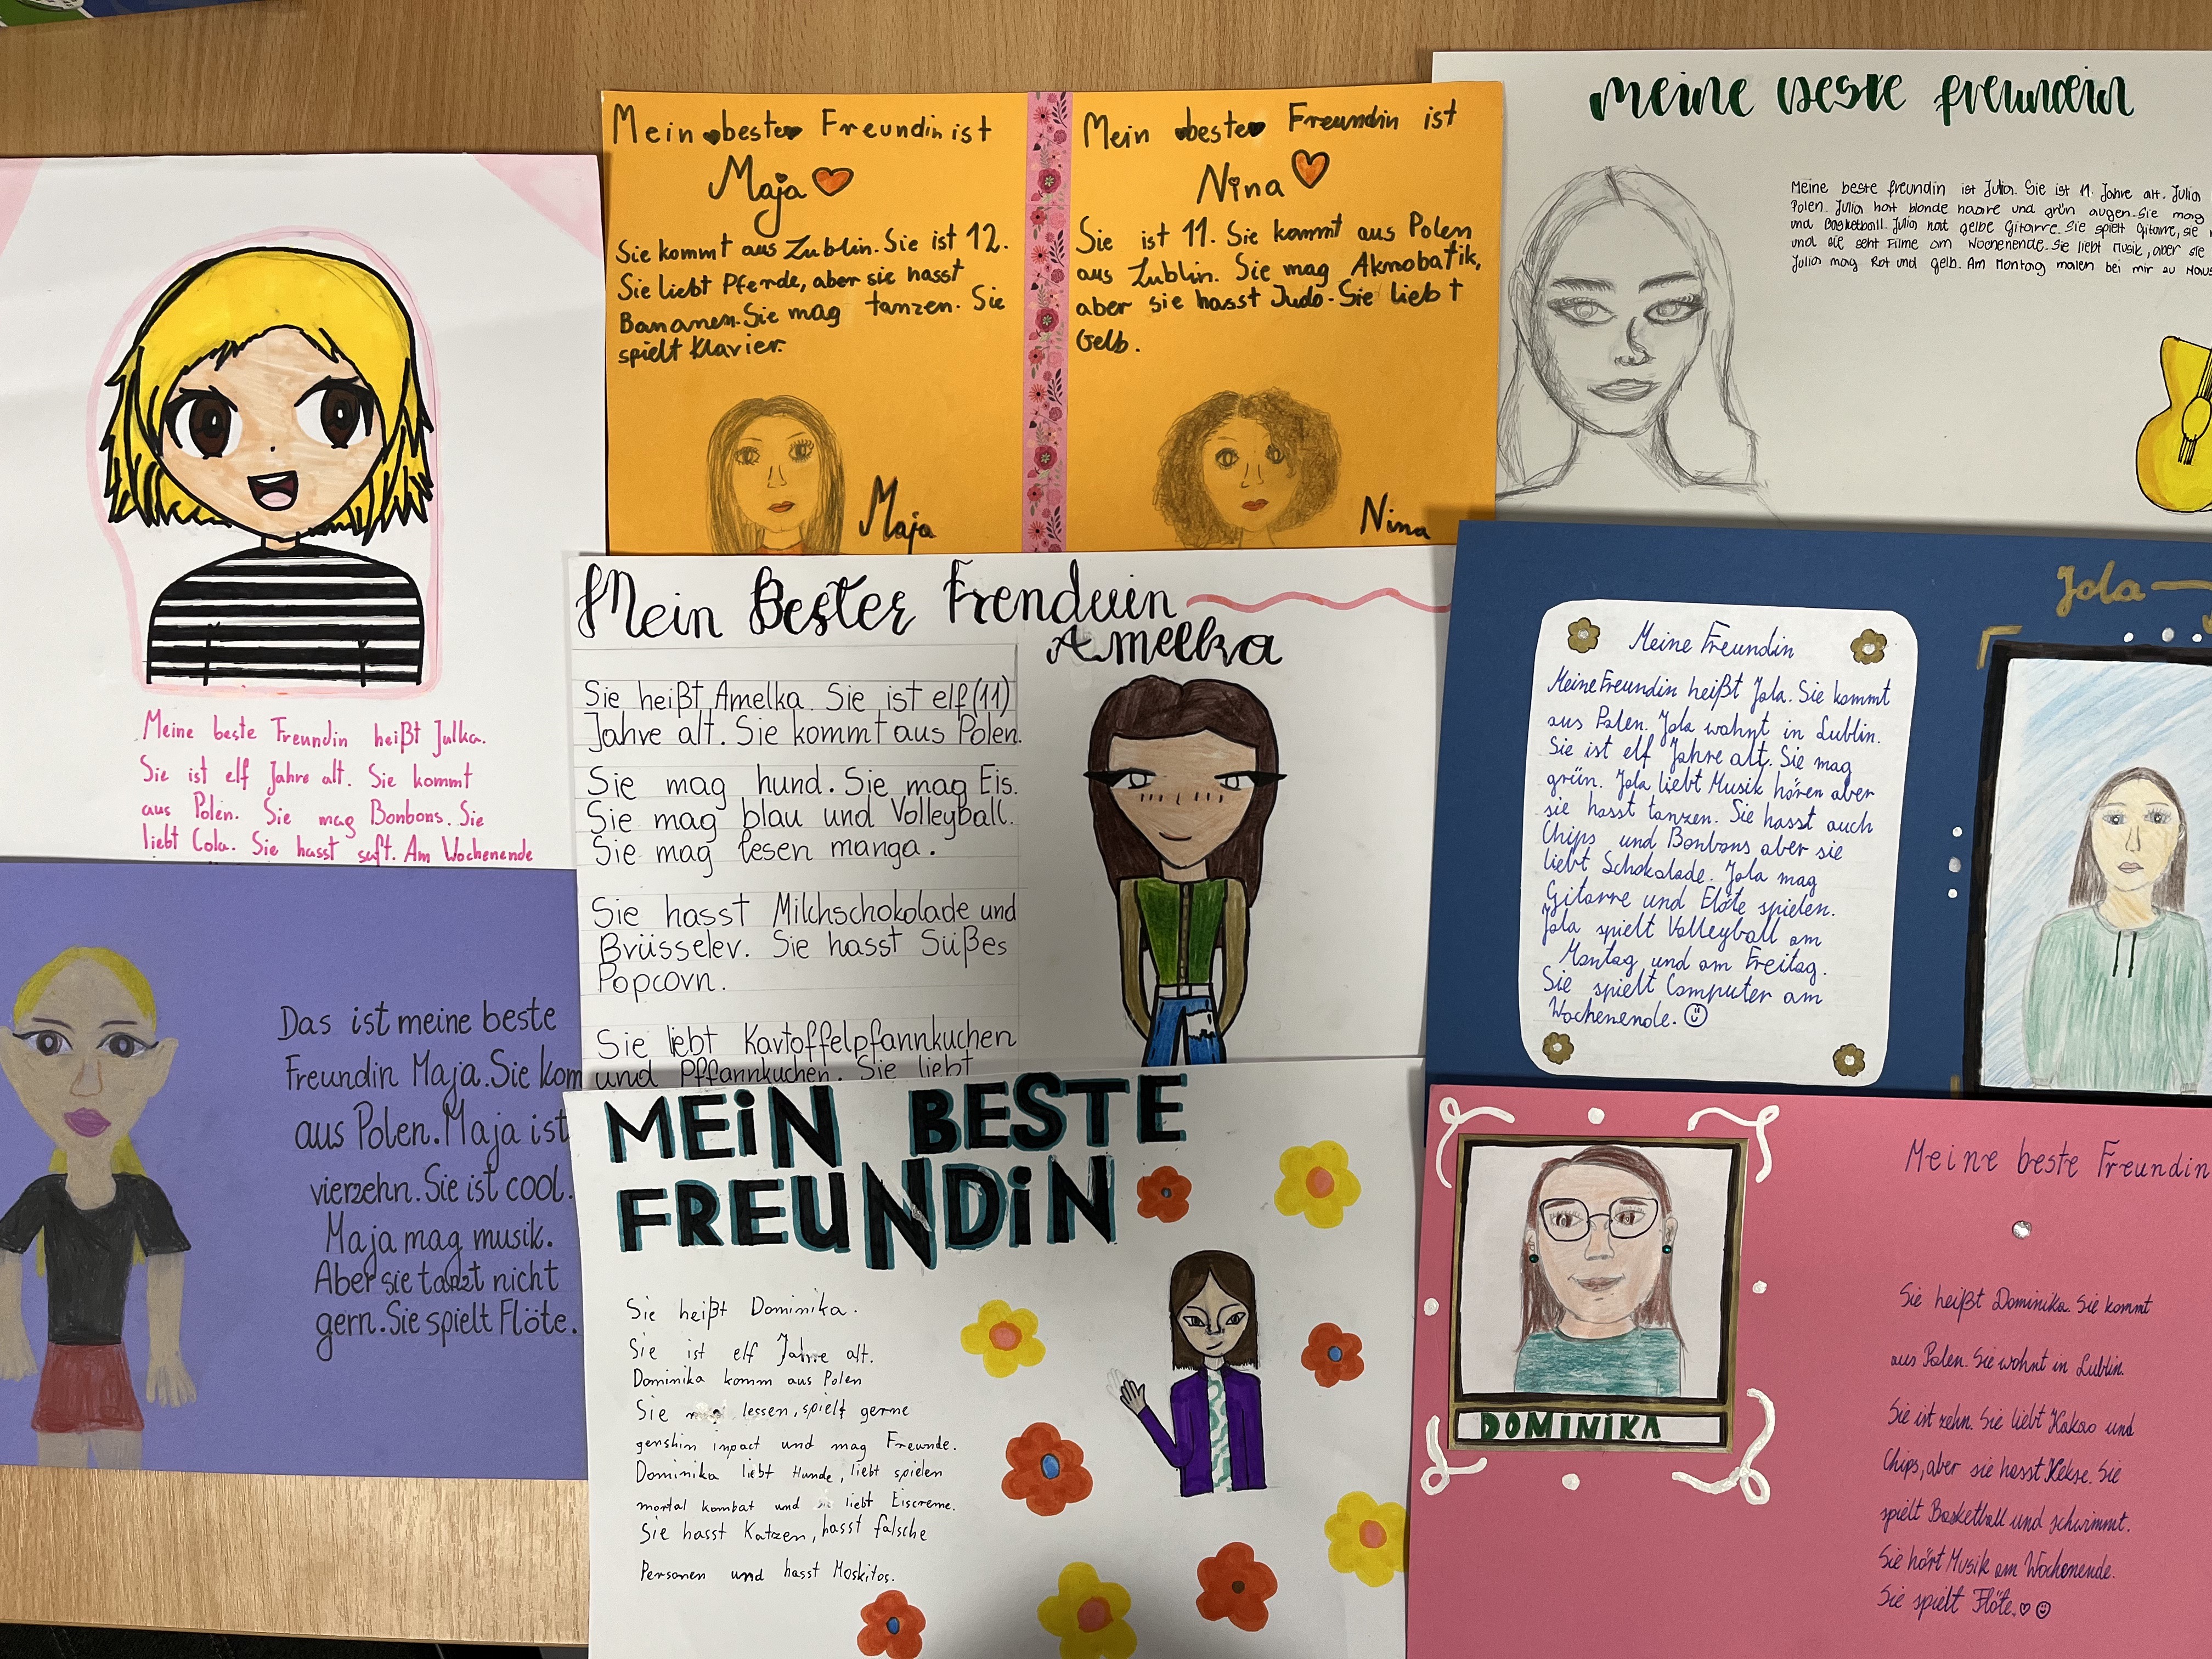 Meine beste Freundin heißt Julka.
Sie ist elf Jahre alt. Sie kommt
aus Polen. Sie mag Bonbons. Sie
liebt Cola. Sie hasst saft. Am Wochenende
Mein beste Freundin ist
Maja
Sie kommt aus Lublin. Sie ist 12.
Sie liebt Pferde, aber sie hasst
Bananen. Sie mag tanzen. Sie
spielt Klavier.
Maja
Mein beste Freundin ist
Nina
Sie ist 11. Sie kommt aus Polen
aus Lublin. Sie mag Akrobatik,
aber sie hasst Judo. Sie liebt
Gelb.
Nina
meine beste freundin
Meine beste freundin ist Julia. Sie ist 11. Jahre alt. Julia
Polen. Julia hat blonde haare und grün augen. Sie mag
und Basketball. Julia hat gelbe Gitarre. Sie spielt Gitarre, sie
und sie seht Filme am Wochenende. Sie liebt Musik, aber sie
Julia mag Rot und Gelb. Am Montag malen bei mir zu Haus
Mein Bester Frenduin
Amelka
Sie heißt Amelka. Sie ist elf (11)
Jahre alt. Sie kommt aus Polen.
Sie mag hund. Sie mag Eis.
Sie mag blau und Volleyball.
Sie mag lesen manga.
Sie hasst Milchschokolade und
Brüsseler. Sie hasst Süßes
Popcorn.
Sie liebt Kartoffelpfannkuchen
und Pffannkuchen. Sie liebt
Jola
Meine Freundin
Meine Freundin heißt Jola. Sie kommt
aus Polen. Jola wohnt in Lublin.
Sie ist elf Jahre alt. Sie mag
grün. Jola liebt Musik hören aber
sie hasst tanzen. Sie hasst auch
Chips und Bonbons aber sie
liebt Schokolade. Jola mag
Gitarre und Flöte spielen.
Jola spielt Volleyball am
Montag und am Freitag.
Sie spielt Computer am
Wochenende.
Das ist meine beste
Freundin Maja. Sie kom
aus Polen. Maja ist
vierzehn. Sie ist cool.
Maja mag musik.
Aber sie tanzt nicht
gern. Sie spielt Flöte.
MEiN BESTE
FREUNDiN
Sie heißt Dominika.
Sie ist elf Jahre alt.
Dominika komm aus Polen
Sie lessen, spielt gerne
genshin inpact und mag Freunde.
Dominika liebt Hunde, liebt spielen
mortal kombat und liebt Eiscreme.
Sie hasst Katzen, hasst falsche
Personen und hasst Moskitos.
DOMINIKA
Meine beste Freundin
Sie heißt Dominika. Sie kommt
aus Polen. Sie wohnt in Lublin.
Sie ist zehn. Sie liebt Kakao und
Chips, aber sie hasst Kekse. Sie
spielt Basketball und schwimmt.
Sie hört Musik am Wochenende.
Sie spielt Flöte.